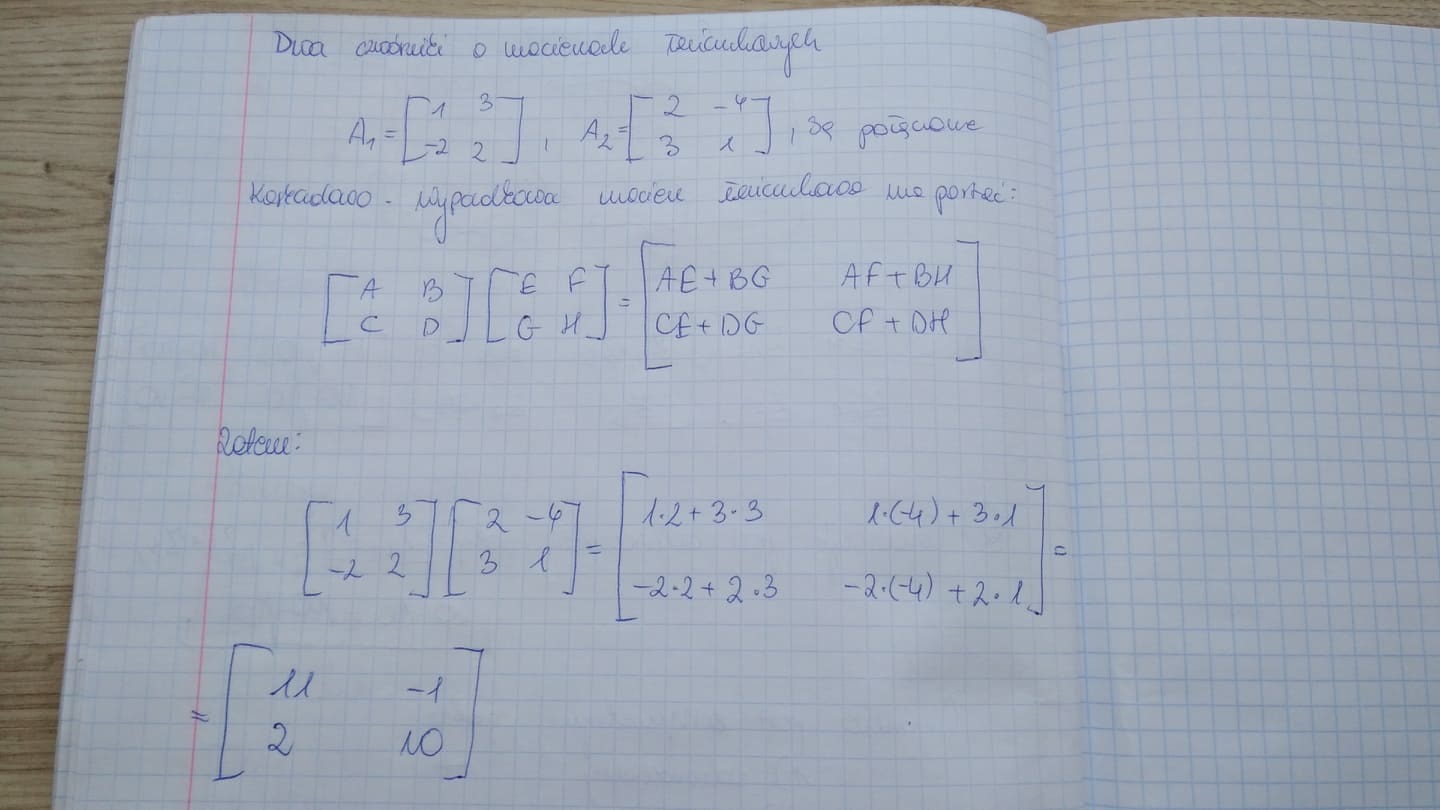 Dwa czwórniki o macierzach łańcuchowych
A₁ = [ 1 3 ; -2 2 ] , A₂ = [ 2 -4 ; 3 1 ] , są połączone
Kaskadowo - wypadkowa macierz łańcuchowa ma postać:
[ A B ; C D ] [ E F ; G H ] = [ AE + BG AF + BH ; CE + DG CF + DH ]
Zatem:
[ 1 3 ; -2 2 ] [ 2 -4 ; 3 1 ] = [ 1·2 + 3·3 1·(-4) + 3·1 ; -2·2 + 2·3 -2·(-4) + 2·1 ] =
= [ 11 -1 ; 2 10 ]